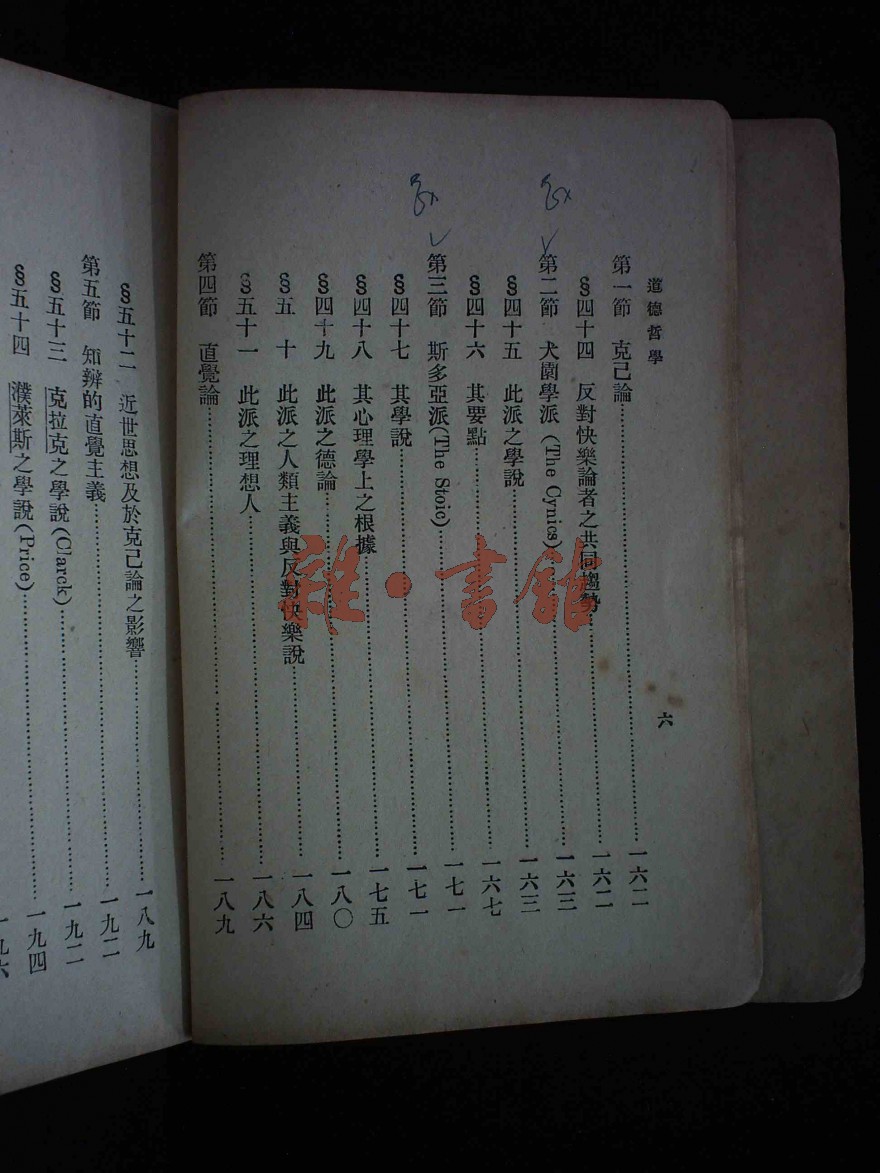 道德哲學 六
第一節 克己論……一六二
§四十四 反對快樂論者之共同趨勢……一六二
第二節 犬園學派(The Cynics)……一六三
§四十五 此派之學說……一六三
§四十六 其要點……一六七
第三節 斯多亞派(The Stoic)……一七一
§四十七 其學說……一七一
§四十八 其心理學上之根據……一七五
§四十九 此派之德論……一八〇
§五十 此派之人類主義與反對快樂說……一八四
§五十一 此派之理想人……一八六
第四節 直覺論……一八九
§五十二 近世思想及於克己論之影響……一八九
第五節 知辨的直覺主義……一九二
§五十三 克拉克之學說(Clarck)……一九二
§五十四 濮萊斯之學說(Price)……一九四
一九六
雜·書館